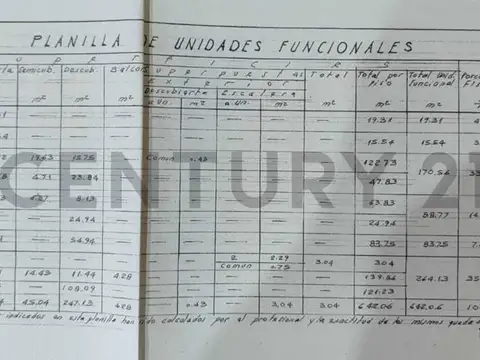 PLANILLA DE UNIDADES FUNCIONALES
Semicub. Descub. Balcón Superpuestas Total Total por Total Unid.
Exterior piso funcional
Descubierta Escalera
m² m² m² a un. m² a un. m² m² m² m²
— — — — — — — — 19.31 19.31
— — — — — — — — 15.54 15.54
15.75 — común 0.43 — — — 122.73
4.71 23.84 — — — — — — 47.83 170.56
8.13 — — — — — — 63.83
— 24.94 — — — — — — 24.94 88.77
— 54.94 — — — — — — 83.75 83.75
— — — — — 2 2.29 3.04 3.04
común 0.75
14.43 11.44 4.28 — — — — — 264.13
— 108.09 — — — — — — 121.23
45.04 247.13 4.28 — 0.43 — 3.04 3.04 642.06 642.06
indicados en esta planilla han sido calculados por el profesional y la exactitud de los mismos queda
CENTURY 21